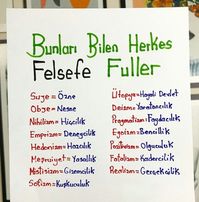 Bunları Bilen Herkes
Felsefe Fuller
Suje = Özne
Obje = Nesne
Nihilizm = Hiççilik
Empirizm = Deneycilik
Hedonizm = Hazcılık
Meşruiyet = Yasallık
Mistisizm = Gizemcilik
Septisizm = Kuşkuculuk
Ütopya = Hayali Devlet
Deizm = Yaratancılık
Pragmatizm = Faydacılık
Egoizm = Bencillik
Pozitivizm = Olguculuk
Fatalizm = Kadercilik
Realizm = Gerçekçilik